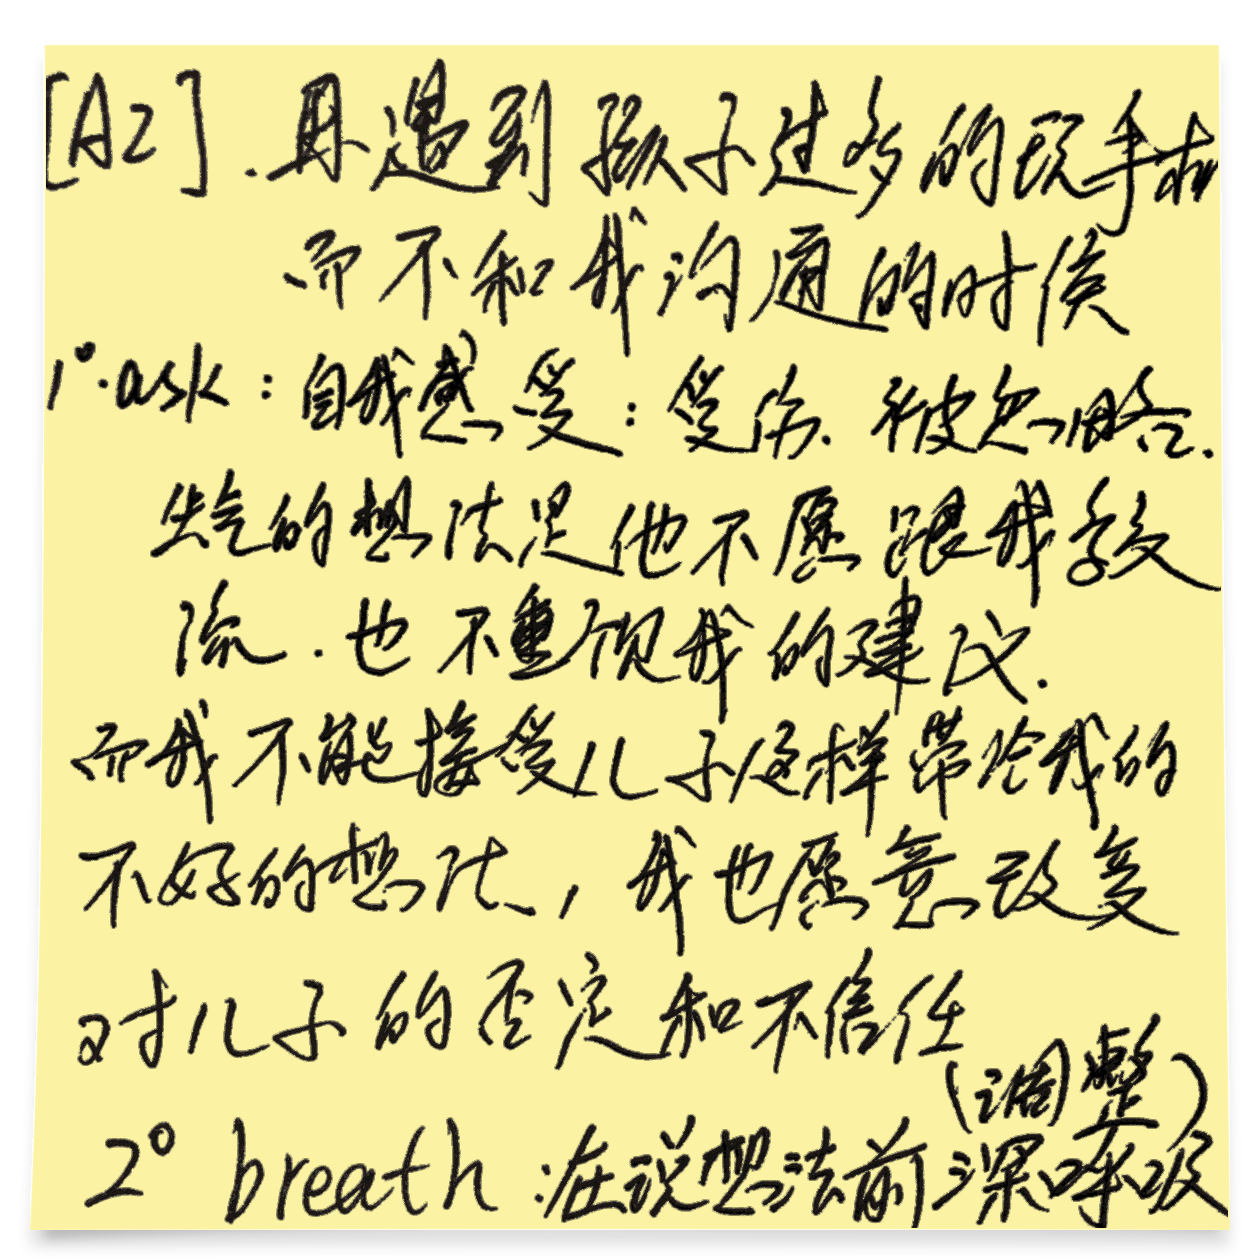 [A2].再遇到孩子过多的玩手机
而不和我沟通的时候
1°.ask:自我感受:受伤.被忽略.
生气的想法是他不愿跟我交
流.也不重视我的建议.
而我不能接受儿子这样带给我的
不好的想法,我也愿意改变
对儿子的否定和不信任
(调整)
2° breath:在说想法前深呼吸